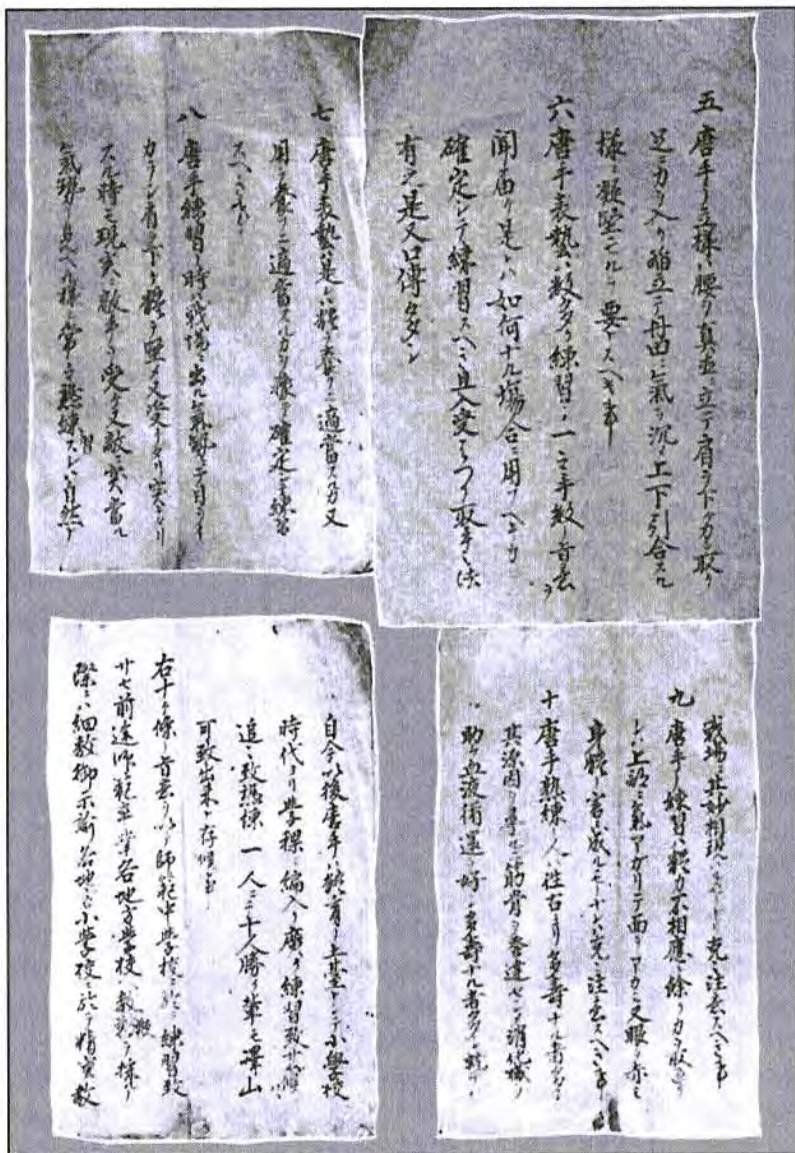 五 唐手ノ立樣ハ腰ヲ真直ニ立テ肩ヲ下ケ力ヲ取リ
足ニ力ヲ入リ踏立テ丹田ニ氣ヲ沈メ上下引合スル
樣ニ凝堅モルヲ要トスヘキ事
六 唐手表藝ハ數多ク練習シ一々手數ノ旨意ヲ
聞届ケ是レハ如何ナル場合ニ用フヘキカ
確定シテ練習スヘシ且入受ハツシ取手ノ法
有之是又口傳多シ
七 唐手表藝ハ是レハ體ヲ養フニ適當スルカ又
用ヲ養フニ適當スルカヲ豫テ確定シテ練習
スヘキ事
八 唐手練習ノ時ハ戰場ニ出ル氣勢ニテ目ヲイ
カラシ肩ヲ下ケ體ヲ堅メ又受ケタリ突キタリ
スル時モ現実ニ敵手ヲ受ケ又敵ニ突當ル
氣勢ノ見ヘル樣ニ常々熟練スレハ自然ト
戰場ニ其妙相現ハルモノナリ克々注意スヘキ事
九 唐手ノ練習ハ體力不相應ニ餘リ力ヲ取過キ
レハ上部ニ氣アガリテ面ヲアカメ又眼ヲ赤ミ
身體ノ害ニ成ルモノナレハ克々注意スヘキ事
十 唐手熟練ノ人ハ往古ヨリ多壽ナル者多シ
其源因ヲ尋ルニ筋骨ヲ發達セシメ消化機ヲ
助ケ血液循還ヲ好クシ多壽ナル者多シ就テハ
自今以後唐手ハ體育ノ土基トシテ小學校
時代ヨリ學課ニ編入リ廣ク練習致サセ候ハヽ
追々致熟練一人ニテ十人勝ノ輩モ澤山
可致出来ト存候也
右十ケ條ノ旨意ヲ以テ師範中學校ニ於テ練習致
サセ前途師範ヲ卒業各地方學校ヘ教鞭ヲ採ルノ
際ニハ細敷御示諭各地方小學校ニ於テ精密教